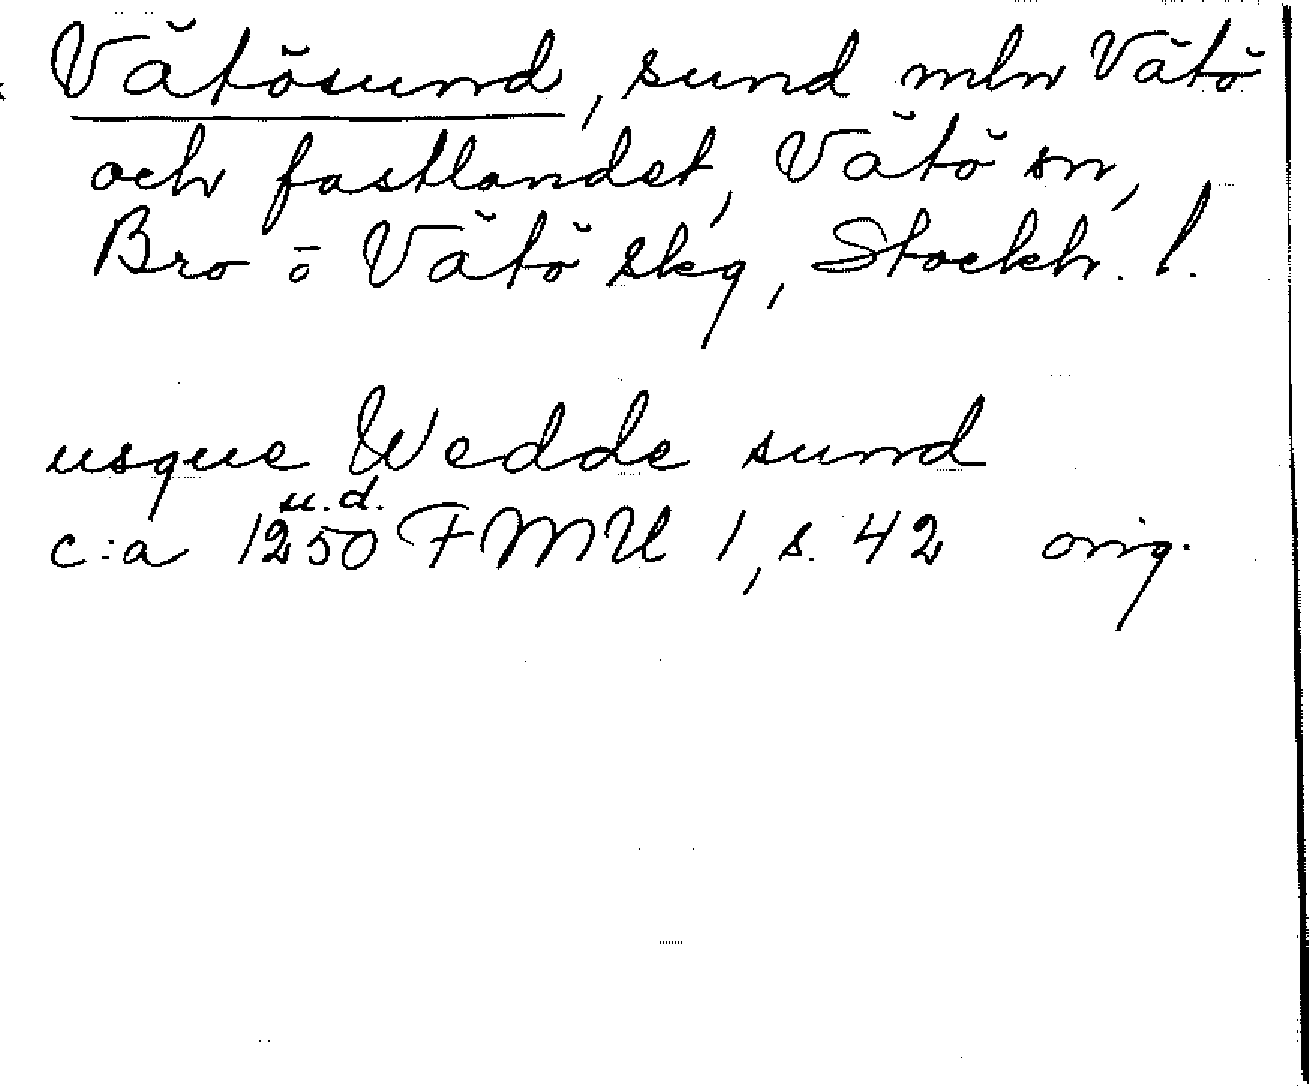 Vätösund, sund mln Vätö
och fastlandet, Vätö sn,
Bro o Vätö skg, Stockh. l.
usque Wedde sund
u.d.
c:a 1250 FMU 1, s. 42 orig.